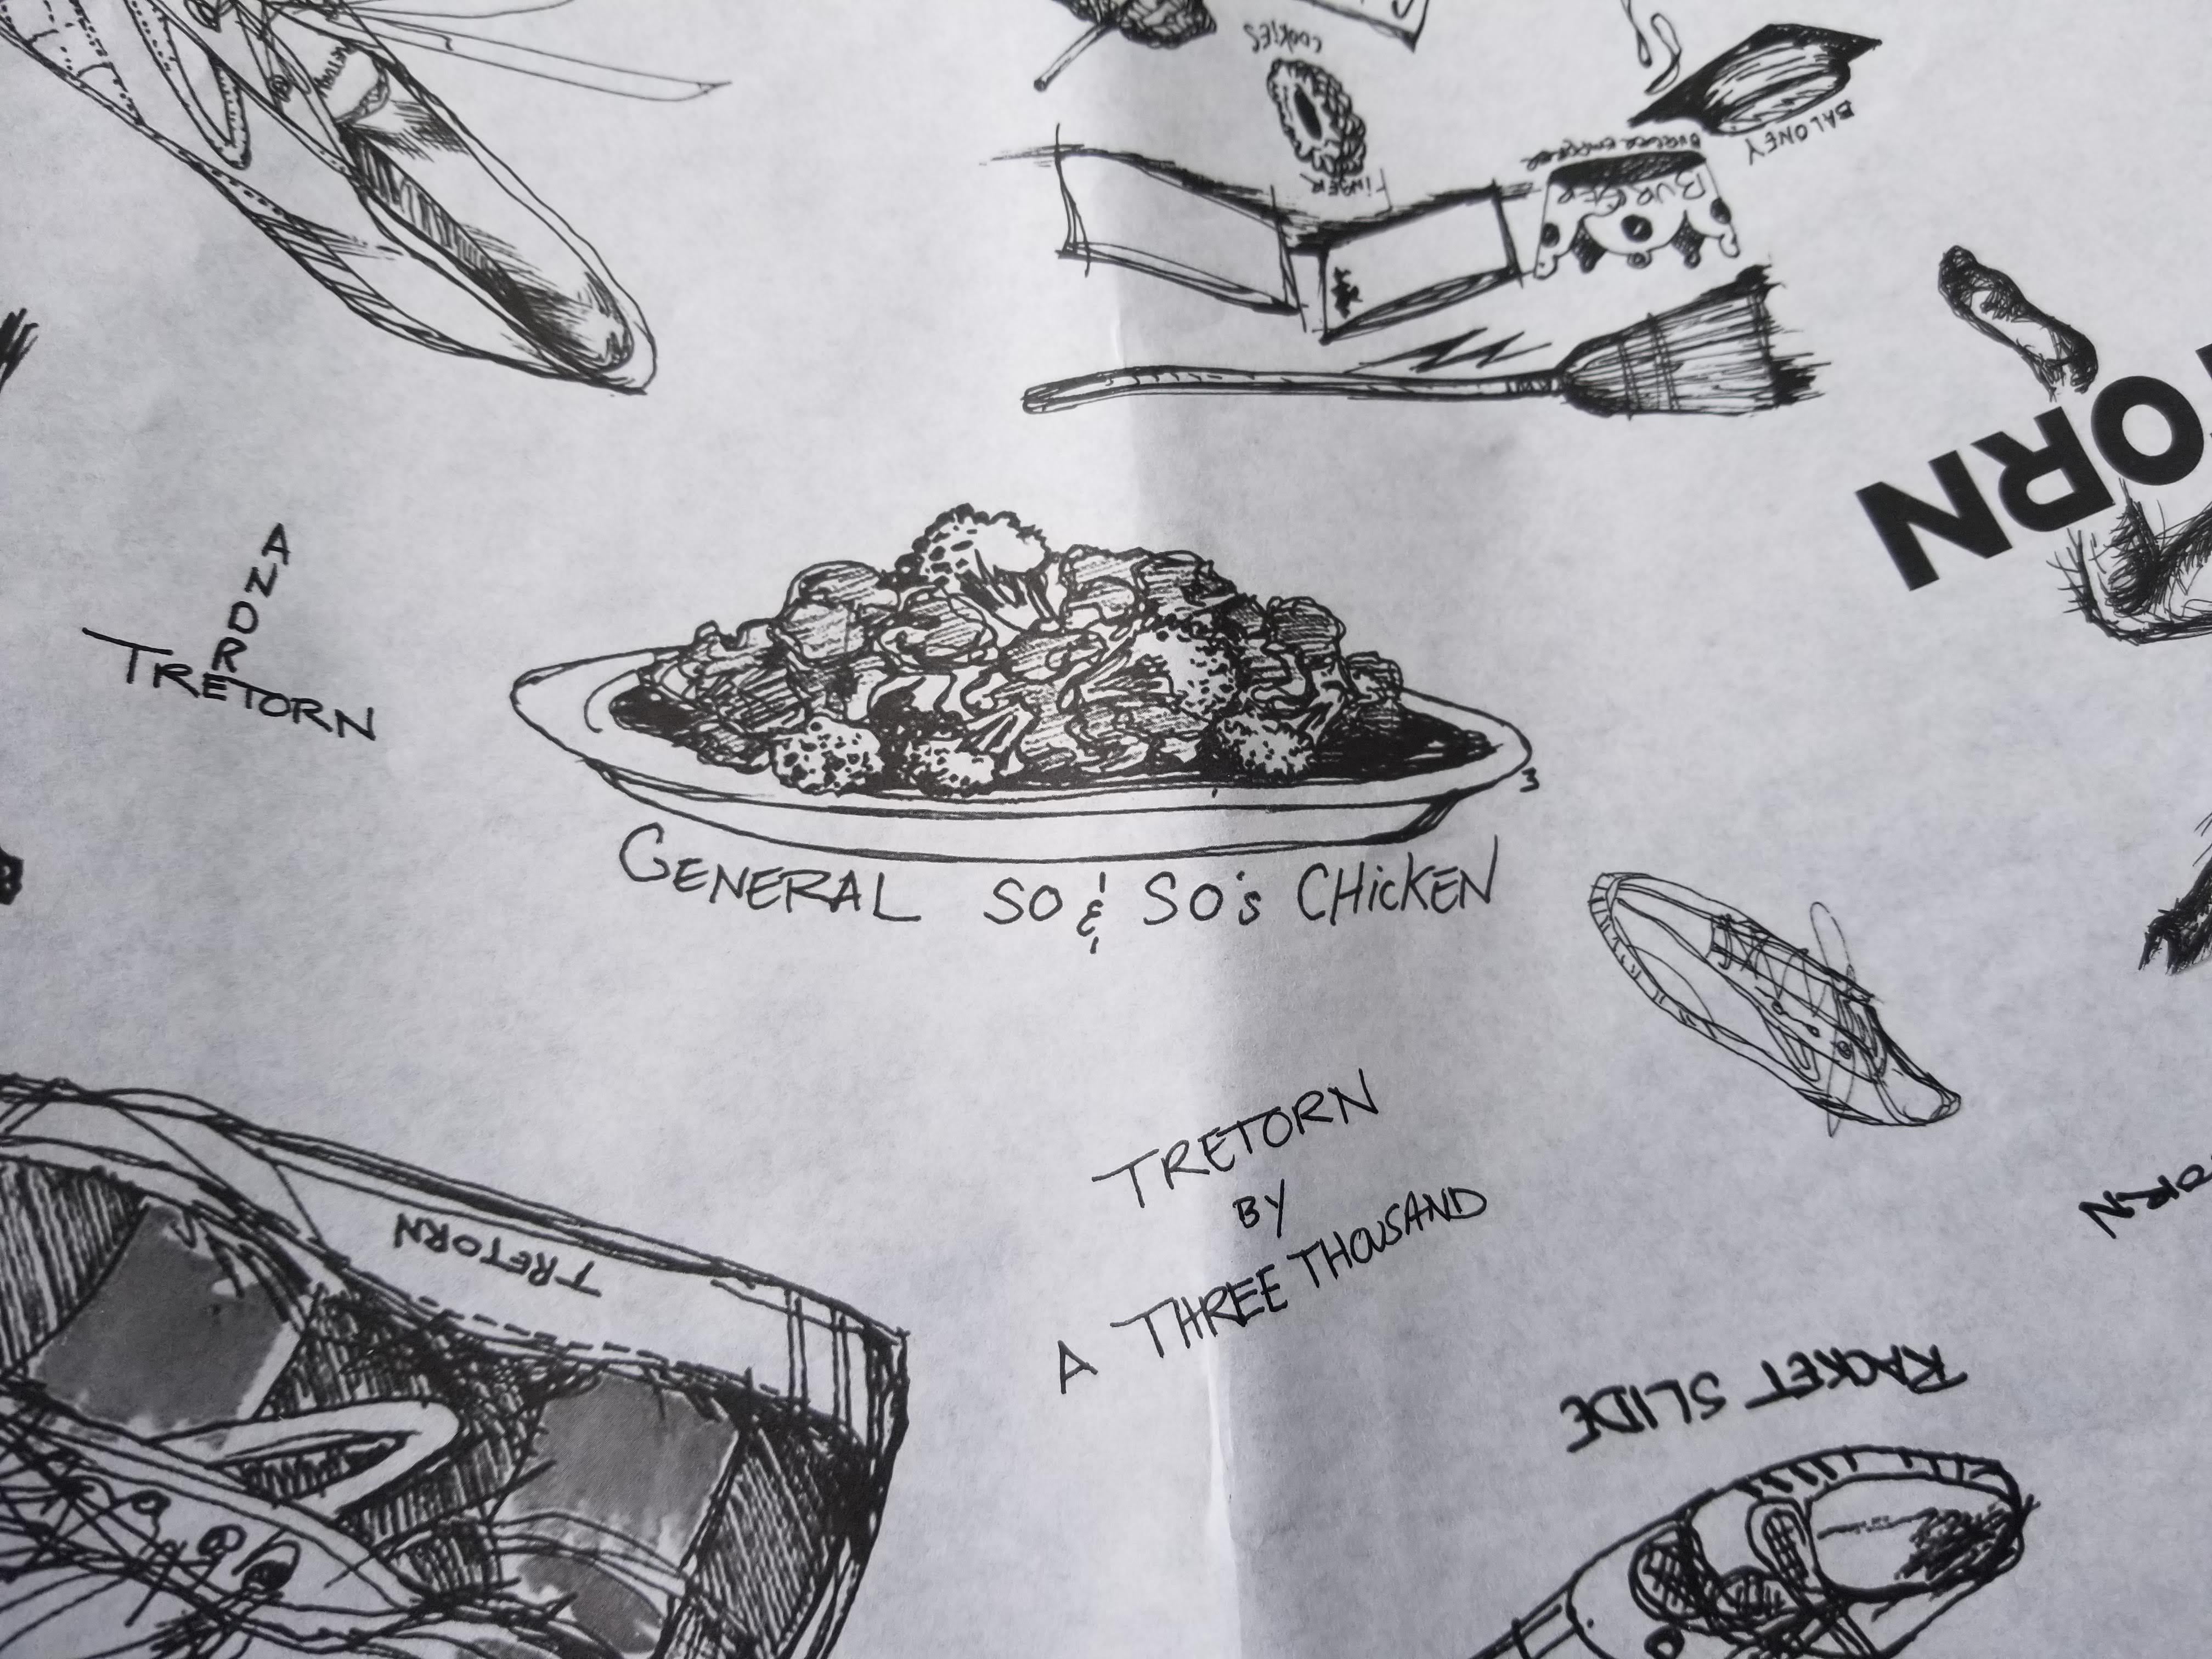 COOKIES
FINGER
BALONEY
BURGER
ORN
ANDR
TRETORN
GENERAL SO & SO's CHiCKEN
TRETORN
BY
A THREE THOUSAND
TRETORN
ORN
RACKET SLIDE